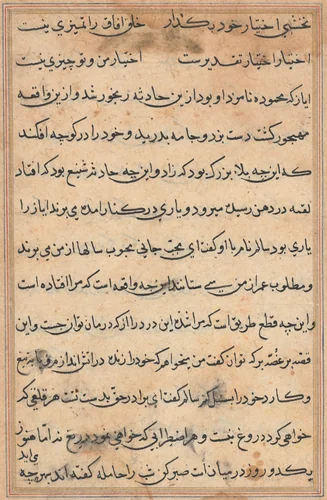 نخشبی اختیار خود بگذار خلق افاق را تمیزی نیست
اختیار اختیار تقدیرست اختیار من و تو چیزی نیست
ایاز که محموده نامزد او بود از ین حادثه رنجور شد و ازین واقعه
مهجور گشت دست بزد و جامه بدرید و خود را در کوچه افکند
که این چه بلا بزرک بود که زاد و این چه حادثه شنیع بود که افتاد
لقمه در دهن رسیده میرود و یاری در کنار امده می برند ایاز را
یاری بود سالم نام با او گفت ای محب جانی محبوب سالها از من می برند
و مطلوب عمر از من می ستانند این چه واقعه است که مرا افتاده است
و این چه قطع طریق است که مرا شد این درد را از که درمان توان جست و این
قصه پر غصه بر که توان گفت من میخواهم که خود را زنده در اتش اندازم
و کارد خود را سالم گفت ای برادر حق بدست تست هر قلقی که
خواهی کرد دروغ نیست و هر اضطرابی که خواهی نمود دریغ نه اما هنوز
می باید
یکدو روز در میان است صبر کن شب را حامله گفته اند ببین چه